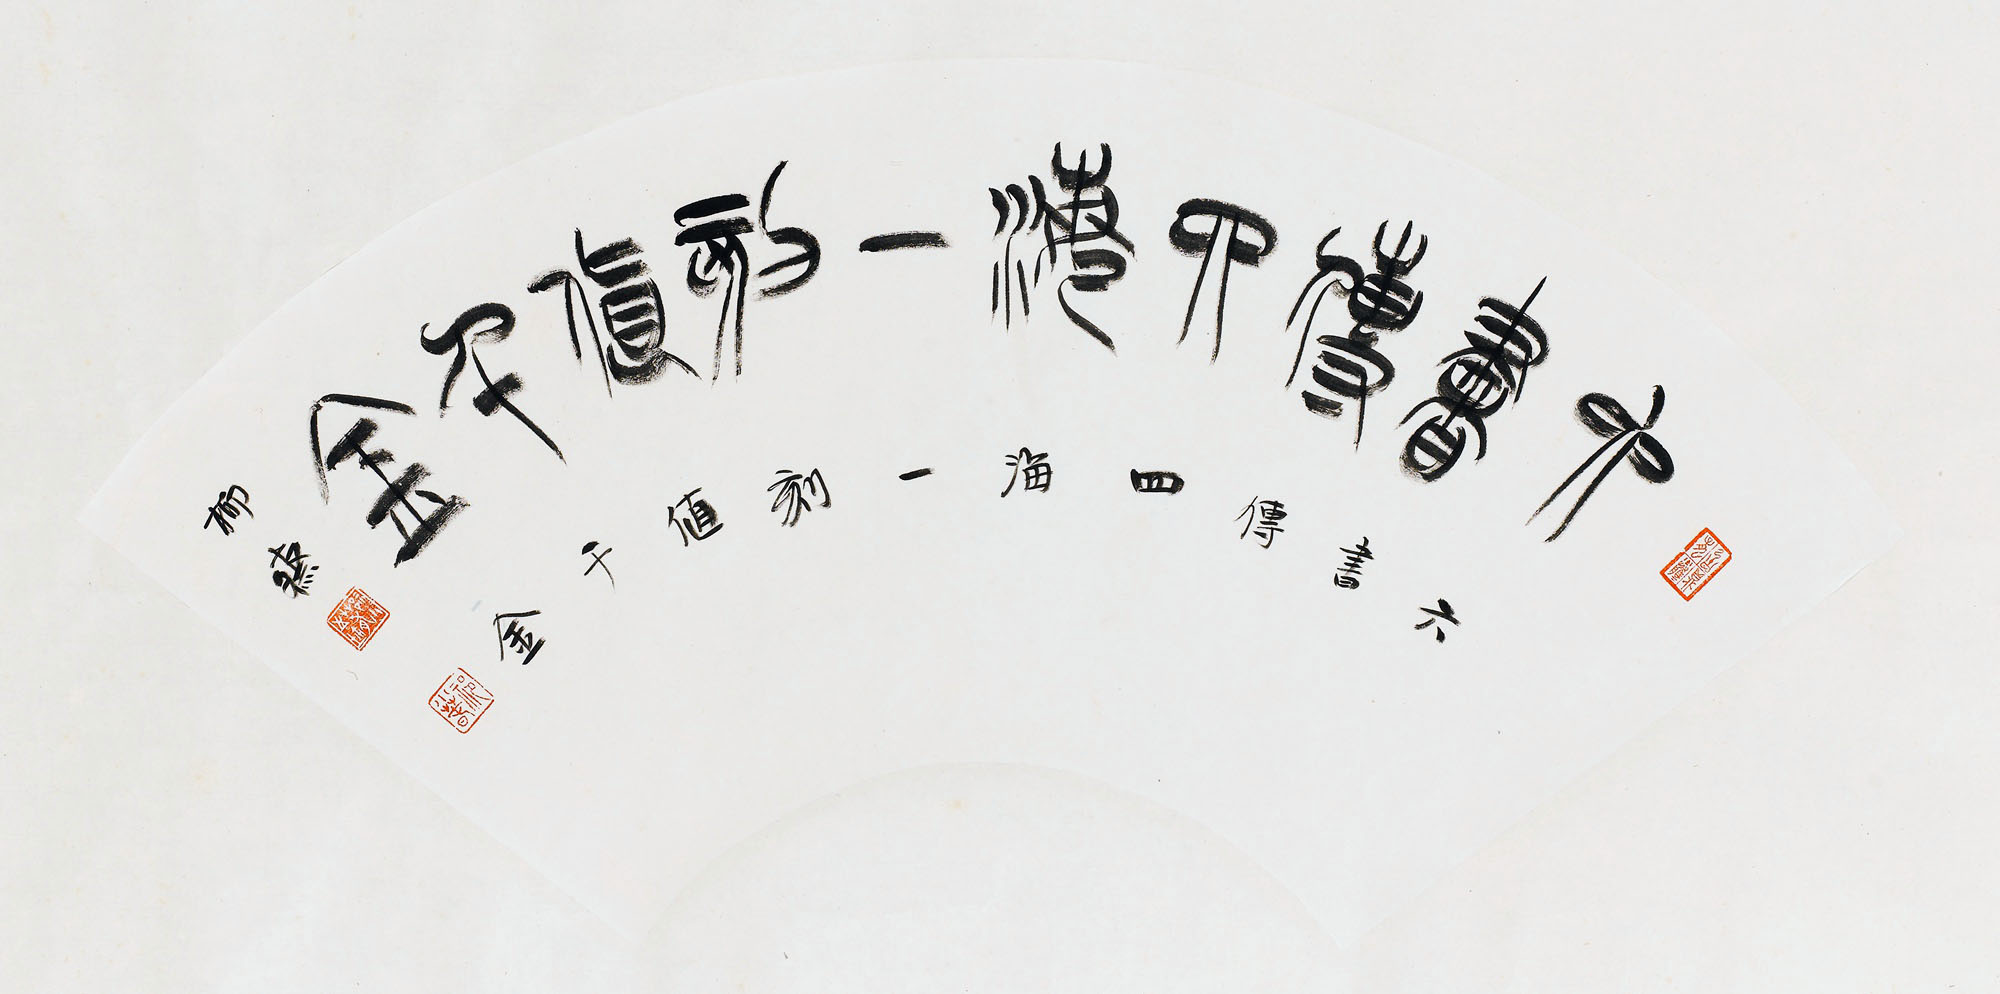 六書傳四海一刻值千金
六書傳四海一刻值千金